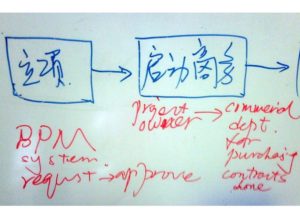 立项
启动商务
project → commercial
owner dept.
BPM for
system. purchasing
request → approve contracts
done